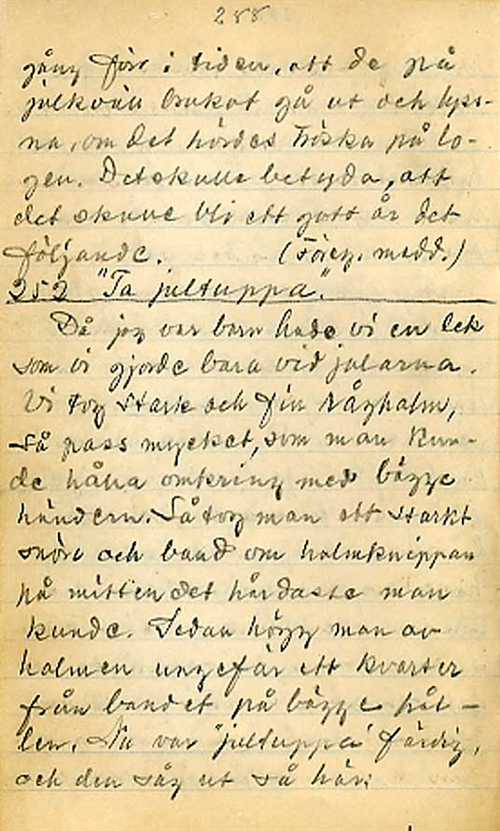 288
gång före i tiden, att de på
julkväll brukat gå ut och lyss-
na, om det hördes tröska på lo-
gen. Det skulle betyda, att
det skulle bli ett gott år det
följande. (Föreg. medd.)
252 "Ta jultuppa".
Då jag var barn hade vi en lek
som vi gjorde bara vid jularna.
Vi tog stark och fin råghalm,
så pass mycket, som man kun-
de hålla omkring med bägge
händern. Så tog man ett starkt
snöre och band om halmknippan
på mitten det hårdaste man
kunde. Sedan högg man av
halmen ungefär ett kvarter
från bandet på bägge hål-
len. Nu var "jultuppa" färdig,
och den såg ut så här: